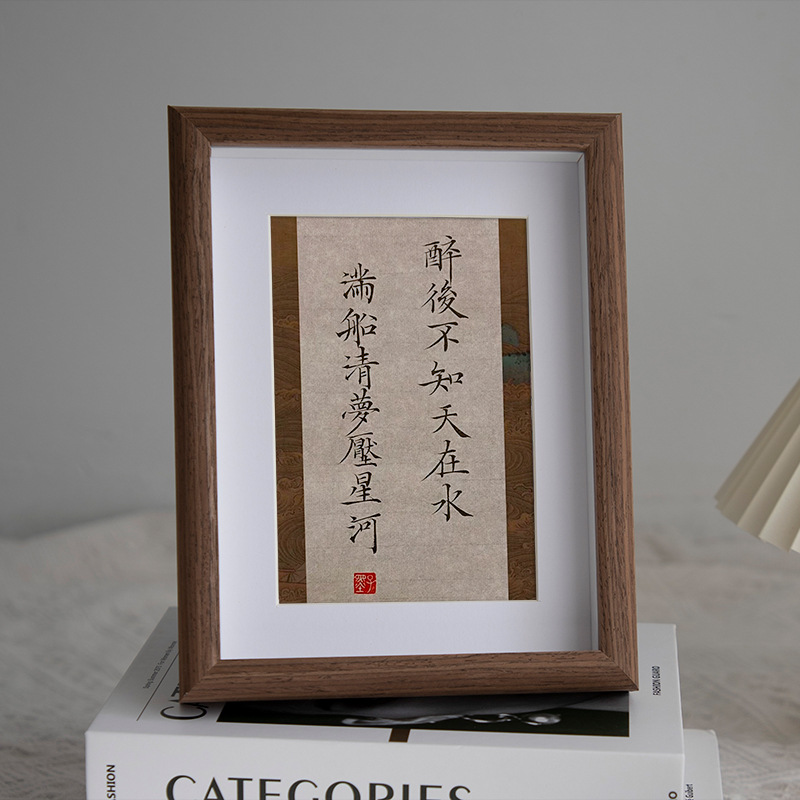 醉後不知天在水
滿船清夢壓星河
CATEGORIES
FASHION
FASHION GUARD